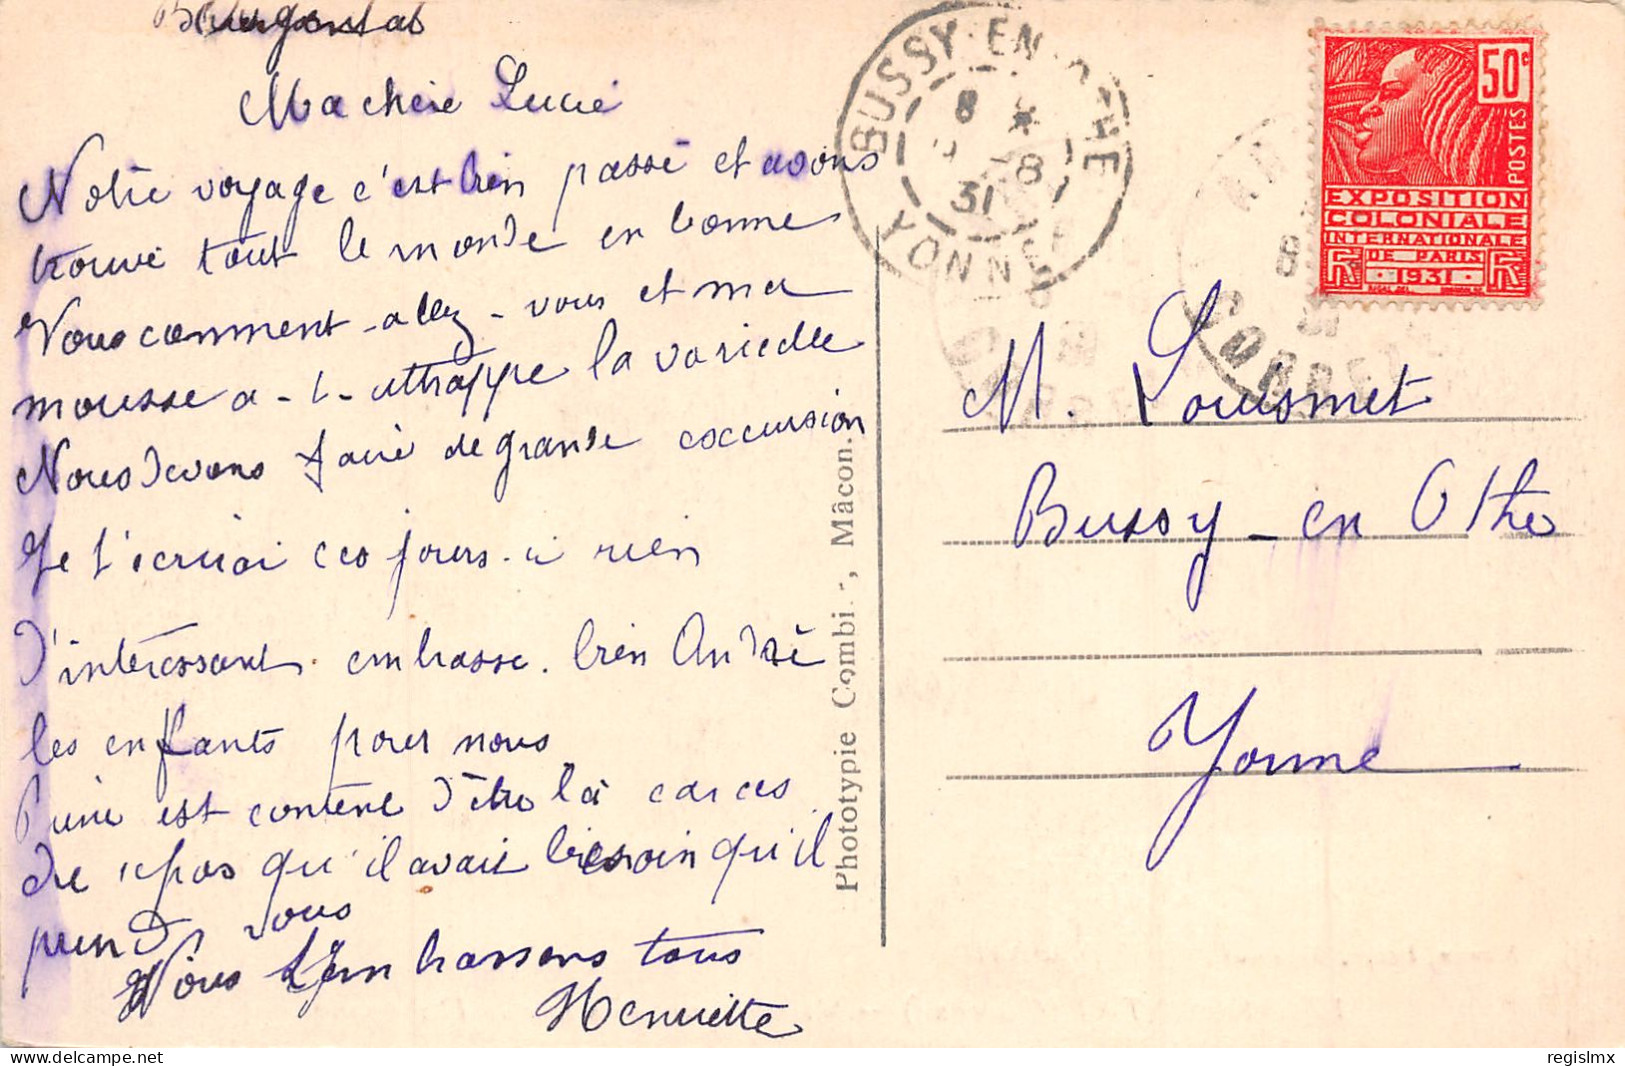 Ma chère Lucie
Notre voyage c'est bien passé et avons
trouvé tout le monde en bonne
Vous comment-allez-vous et ma
mousse a-t-attrappé la varicelle
Nous devons faire de grande excursion
Je t'écrirai ces jours-ci rien
d'intéressant. embrasse. bien André
les enfants pour nous
est contene d'être là car ces
de repas qu'il avait besoin qu'il
prend vous
Nous t'embrassons tous
Henriette
Phototypie Combier, Mâcon.
BUSSY-EN-OTHE
8 *
-8
31
YONNE
50c
POSTES
EXPOSITION
COLONIALE
INTERNATIONALE
DE PARIS
RF 1931 RF
M. Louismet
Bussy-en Othe
Yonne
regislmx